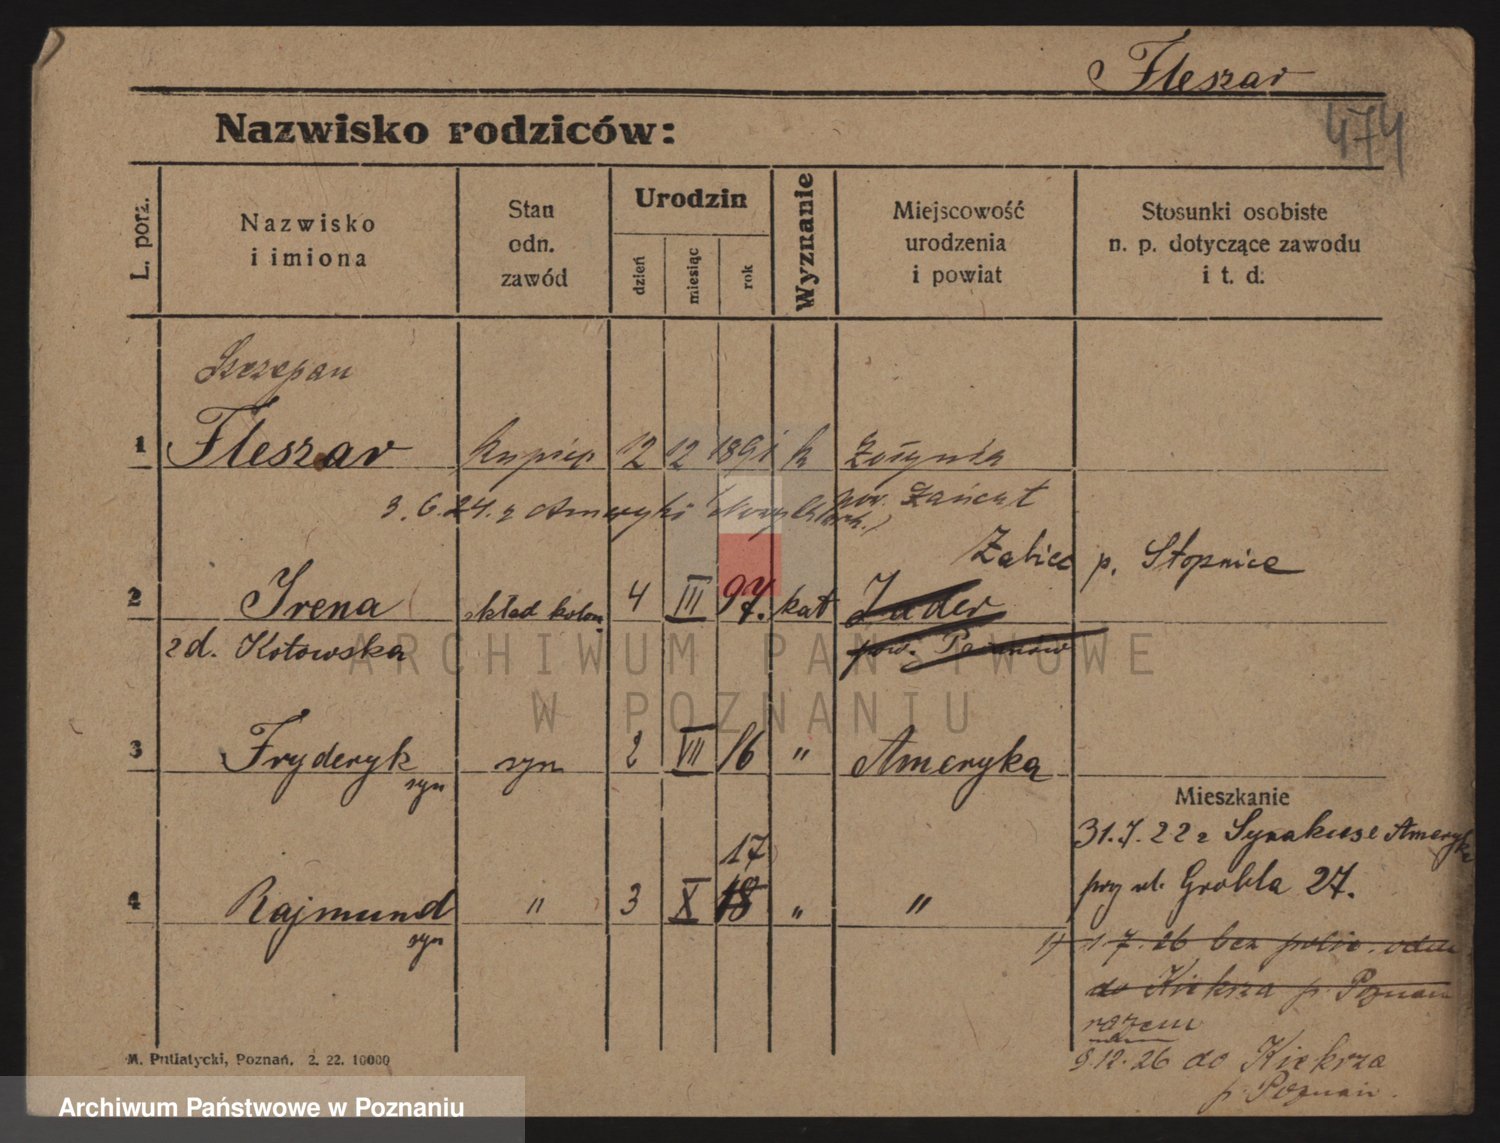 Fleszar
474
Nazwisko rodziców:
L. porz.
Nazwisko
i imiona
Stan
odn.
zawód
Urodzin
dzień
miesiąc
rok
Wyznanie
Miejscowość
urodzenia
i powiat
Stosunki osobiste
n. p. dotyczące zawodu
i t. d.
Szczepan
1 Fleszar kupiec 12 12 1891 k Żołynia
3.6.24. z Ameryki pow. Łańcut
Żabiec p. Stopnica
2 Irena skład kolon. 4 III 97. kat
zd. Kotowska pow.
3 Fryderyk syn 2 VII 16 " Ameryka
syn
Mieszkanie
31.7.22 z Syrakuse Ameryka
17
4 Rajmund " 3 X 18 " "
przy ul. Grobla 27.
syn
1) 1 7. 26 bez polic.
do Kiekrza p Poznań
razem
9.12.26 do Kiekrza
p Poznań.
M. Putiatycki, Poznań. 2. 22. 10000
ARCHIWUM PAŃSTWOWE
W POZNANIU
Archiwum Państwowe w Poznaniu